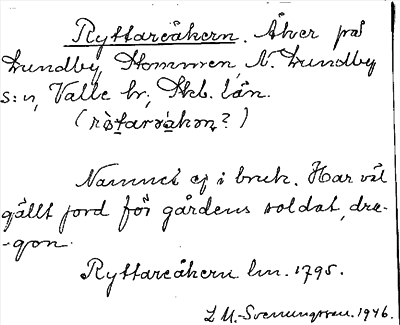 Ryttareåkern. Åker på
Lundby, Stommen, N. Lundby
s:n, Valle hr; Skb. län.
(rỳtarɑ̀kɔn?)
Namnet ej i bruk. Har väl
gällt jord för gårdens soldat, dra-
-gon.
Ryttareåkern lm. 1795.
L M.-Svenungsson. 1946.